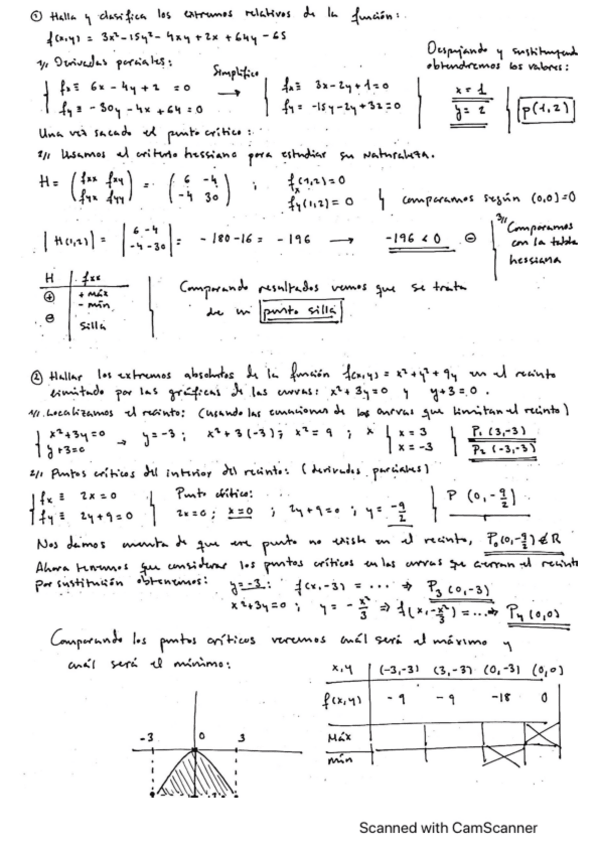 ① Halla y clasifica los extremos relativos de la función:
f(x,y) = 3x²-15y²-4xy+2x+64y-65
1// Derivadas parciales:
Despejando y sustituyendo
obtendremos los valores:
fx ≡ 6x-4y+2 = 0
Simplifico →
fx ≡ 3x-2y+1 = 0
x = 1
fy ≡ -30y-4x+64 = 0
fy ≡ -15y-2y+32 = 0
y = 2
P(1,2)
Una vez sacado el punto crítico:
2// Usamos el criterio hessiano para estudiar su naturaleza.
H = (fxx fxy) = (6 -4) ; fx(1,2)=0
(fyx fyy) (-4 30) fy(1,2)=0 comparamos según (0,0)=0
|H(1,2)| = |6 -4| = -180-16 = -196 → -196 < 0 ⊖
|-4 -30|
3// Comparamos
con la tabla
hessiana
H | fxx
⊕ | + máx
- mín
⊖ | Silla
Comparando resultados vemos que se trata
de un punto silla
② Hallar los extremos absolutos de la función f(x,y) = x²+y²+9y en el recinto
limitado por las gráficas de las curvas: x²+3y=0 y y+3=0.
1// Localizamos el recinto: (usando las ecuaciones de las curvas que limitan el recinto)
x²+3y=0 → y=-3 ; x²+3(-3) ; x²=9 ; x x=3 P₁(3,-3)
y+3=0 x=-3 P₂(-3,-3)
2// Puntos críticos del interior del recinto: (derivadas parciales)
fx ≡ 2x=0 Punto crítico:
fy ≡ 2y+9=0 2x=0 ; x=0 ; 2y+9=0 ; y=-9/2 P(0,-9/2)
Nos damos cuenta de que ese punto no existe en el recinto, P₀(0,-9/2)∉R
Ahora tenemos que considerar los puntos críticos en las curvas que cierran el recinto
por sustitución obtenemos: y=-3 : f(x,-3) = ... ⇒ P₃(0,-3)
x²+3y=0 ; y = -x²/3 ⇒ f(x,-x²/3) = ... ⇒ P₄(0,0)
Comparando los puntos críticos veremos cuál será el máximo y
cuál será el mínimo:
x,y | (-3,-3) (3,-3) (0,-3) (0,0)
f(x,y) | -9 -9 -18 0
Máx
mín
-3 0 3
Scanned with CamScanner